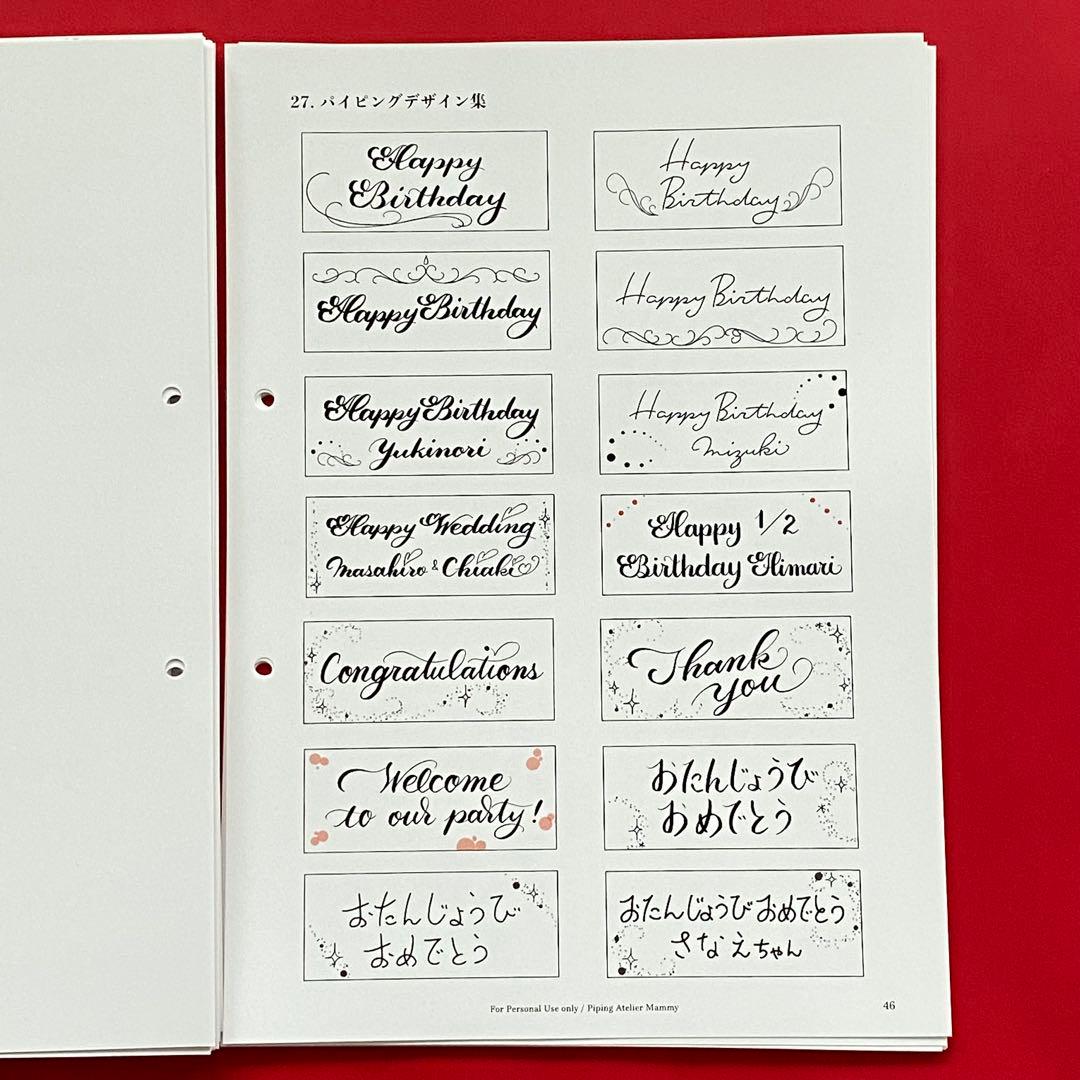 27. パイピングデザイン集
Happy
Birthday
Happy
Birthday
Happy Birthday
Happy Birthday
Happy Birthday
Yukinori
Happy Birthday
Mizuki
Happy Wedding
Masahiro & Chiaki
Happy 1/2
Birthday Himari
Congratulations
Thank
you
Welcome
to our party!
おたんじょうび
おめでとう
おたんじょうび
おめでとう
おたんじょうび おめでとう
さなえちゃん
For Personal Use only / Piping Atelier Mammy
46